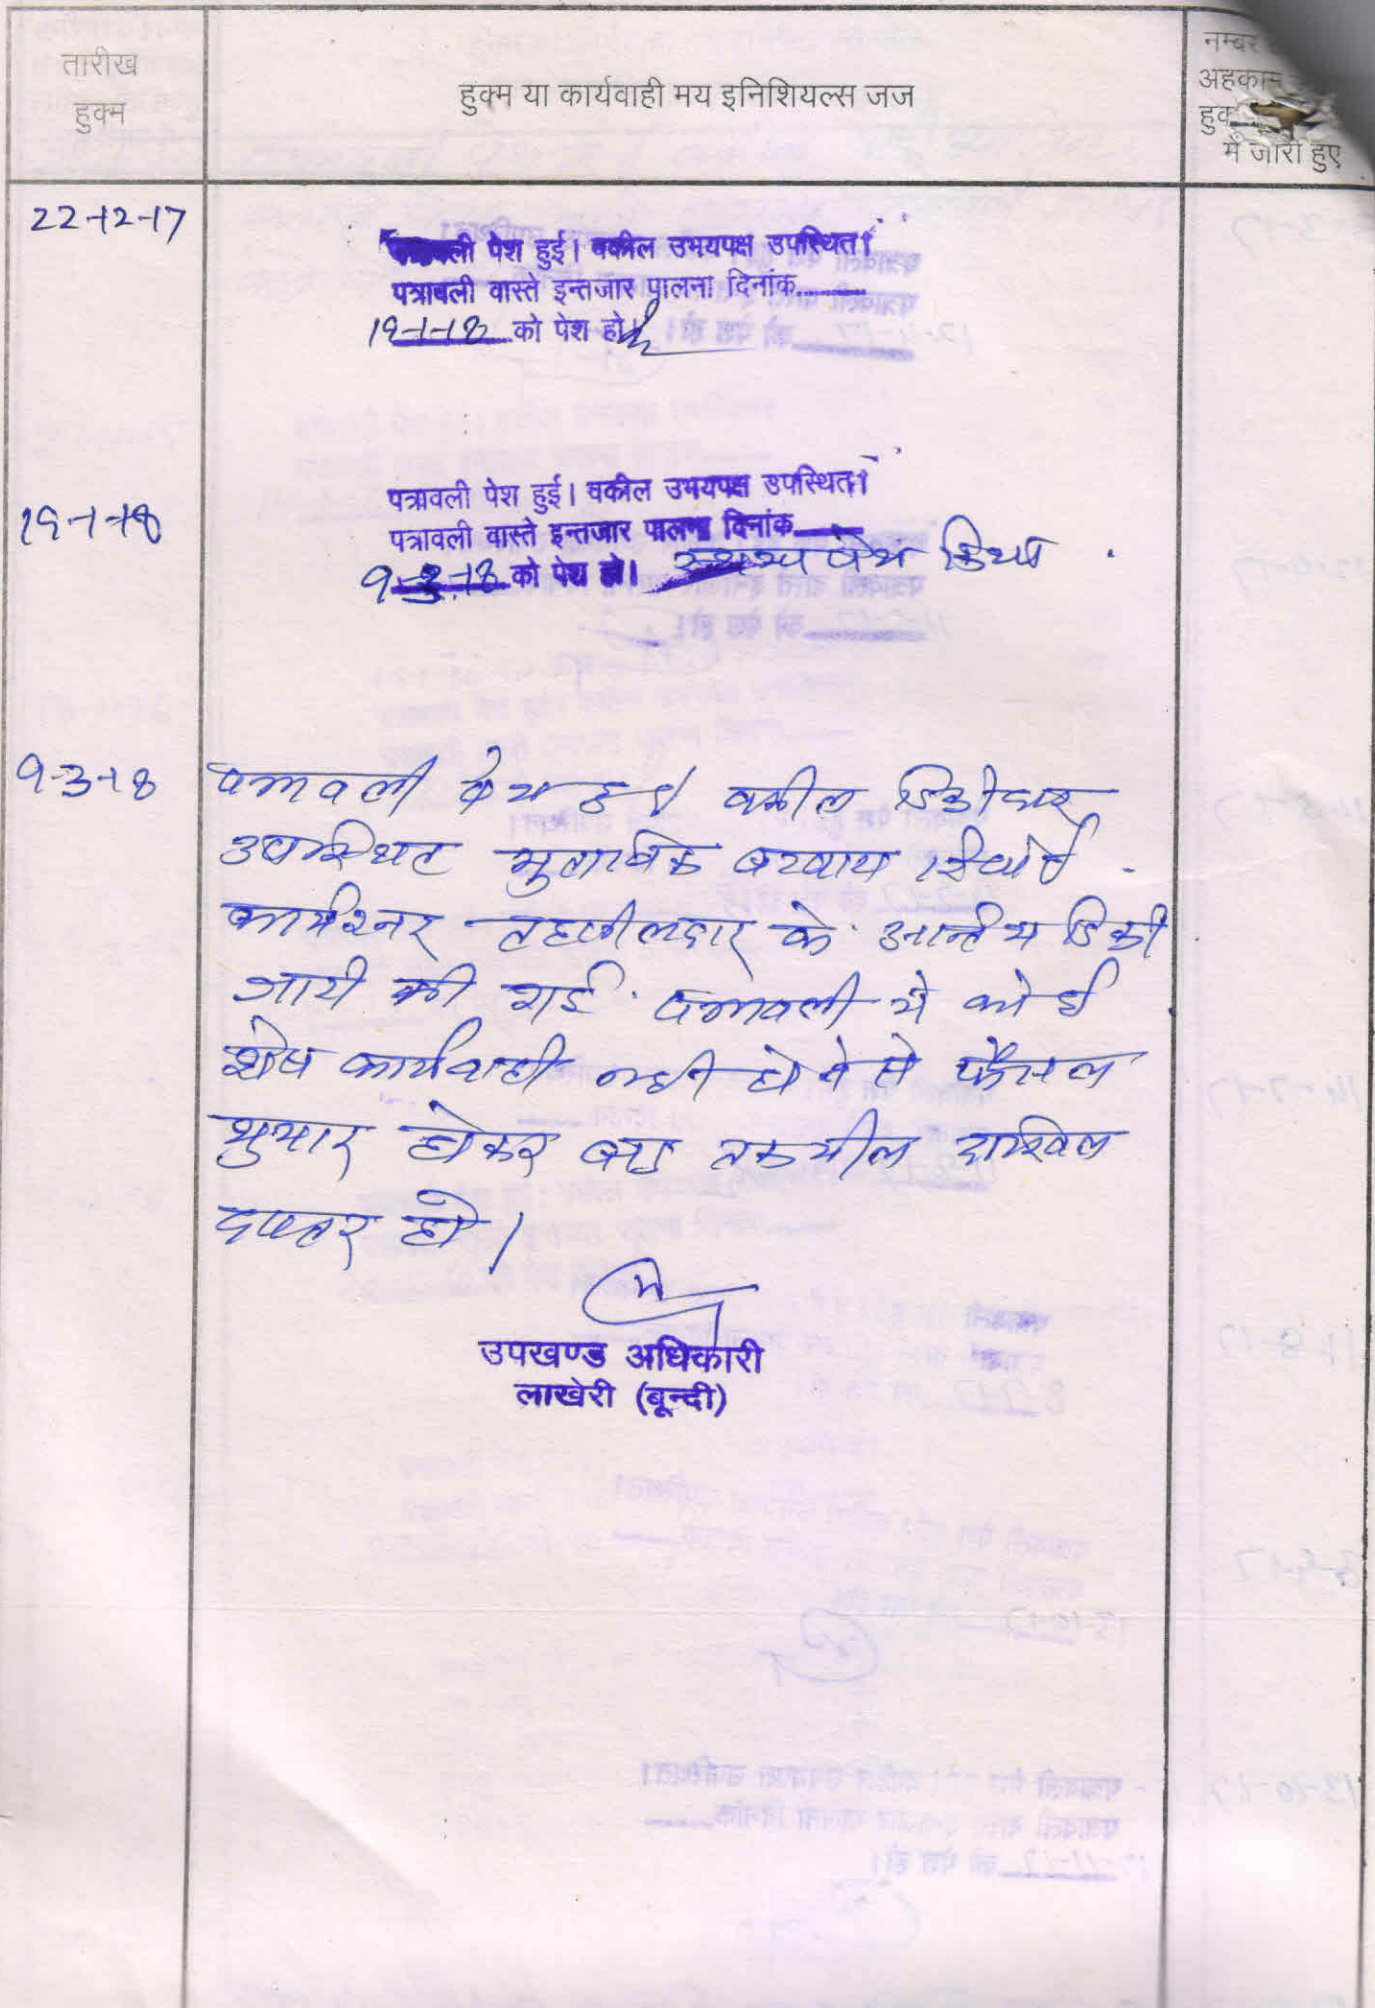 तारीख
हुक्म
हुक्म या कार्यवाही मय इनिशियल्स जज
नम्बर
अहकाम
हुक
में जारी हुए
22-12-17
पत्रावली पेश हुई। वकील उभयपक्ष उपस्थित।
पत्रावली वास्ते इन्तजार पालना दिनांक
19-1-18 को पेश हो।
19-1-18
पत्रावली पेश हुई। वकील उभयपक्ष उपस्थित।
पत्रावली वास्ते इन्तजार पालना दिनांक
9-3-18 को पेश हो। पेश किया
9-3-18
पत्रावली पेश हुई। वकील डिक्रीदार
उपस्थित मुताबिक रिपोर्ट
कमिश्नर तहसीलदार के डिक्री
जारी की गई पत्रावली मे कोई
शेष कार्यवाही नही होने से फैसल
शुमार होकर बाद तकमील दाखिल
दफ्तर हो।
उपखण्ड अधिकारी
लाखेरी (बून्दी)